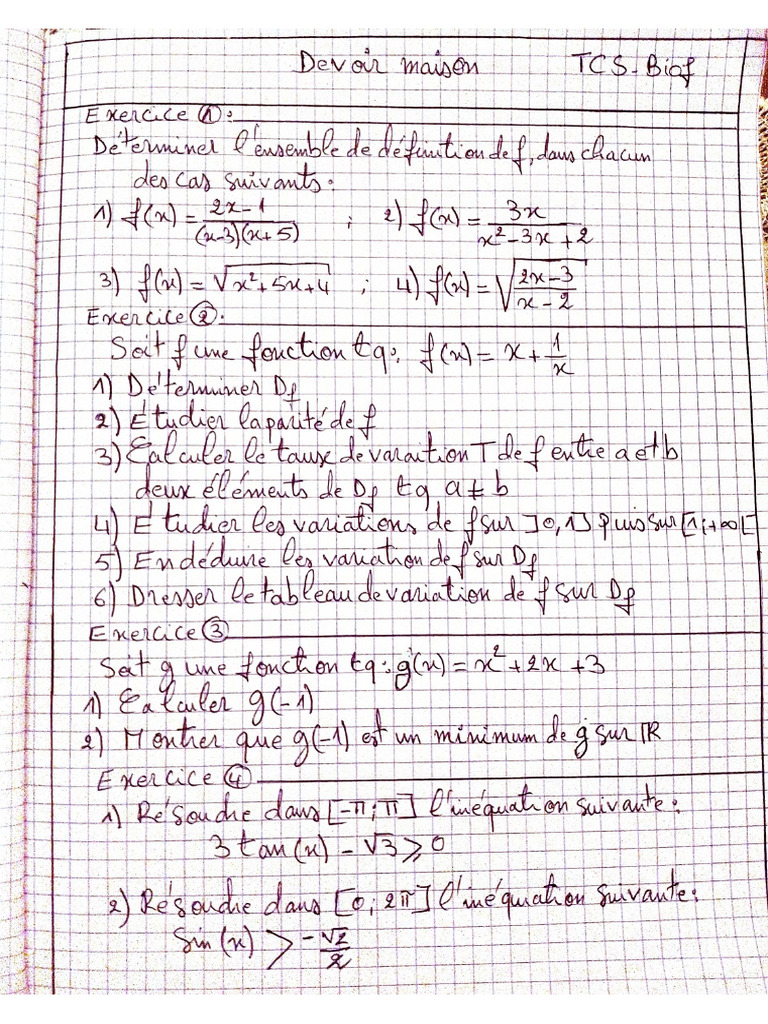 Devoir maison TCS-Biof
Exercice ①:
Déterminer l'ensemble de définition de f, dans chacun
des cas suivants:
1) f(x) = (2x-1)/((x-3)(x+5)) ; 2) f(x) = 3x/(x²-3x+2)
3) f(x) = √(x²+5x+4) ; 4) f(x) = √((2x-3)/(x-2))
Exercice ②:
Soit f une fonction tq: f(x) = x + 1/x
1) Déterminer Df
2) Etudier la parité de f
3) Calculer le taux de varaition T de f entre a et b
deux éléments de Df tq a ≠ b
4) Etudier les variations de f sur ]0,1] puis sur [1;+∞[
5) En déduire les variation de f sur Df
6) Dresser le tableau de variation de f sur Df
Exercice ③
Soit g une fonction tq: g(x) = x² + 2x + 3
1) Calculer g(-1)
2) Montrer que g(-1) est un minimum de g sur ℝ
Exercice ④
1) Résoudre dans [-π;π] l'inéquation suivante:
3tan(x) - √3 ⩾ 0
2) Résoudre dans [0;2π] l'inéquation suivante:
Sin(x) > -√2/2